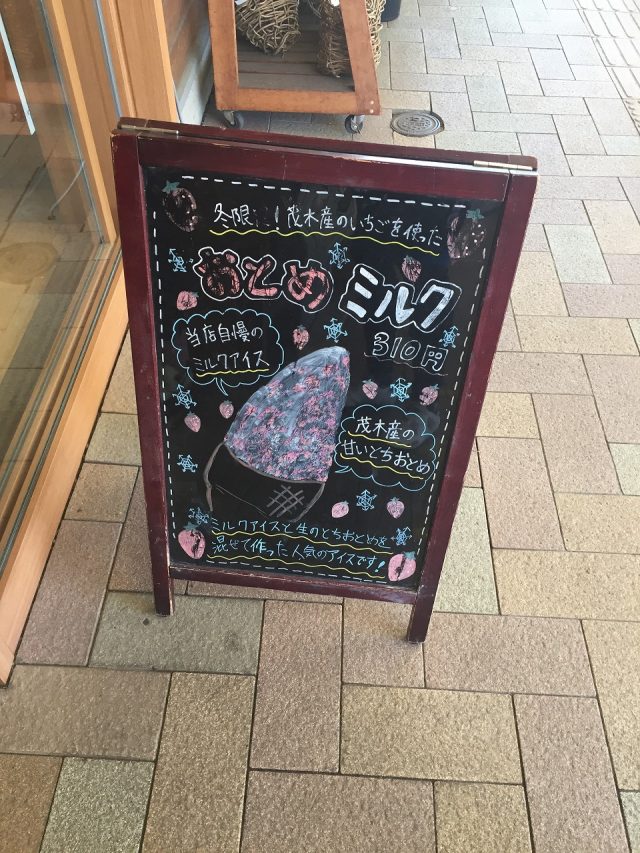 冬限！茂木産のいちごを使った
おとめ ミルク
310円
当店自慢の
ミルクアイス
茂木産の
甘いとちおとめ
ミルクアイスと生のとちおとめを
混ぜて作った人気のアイスです！